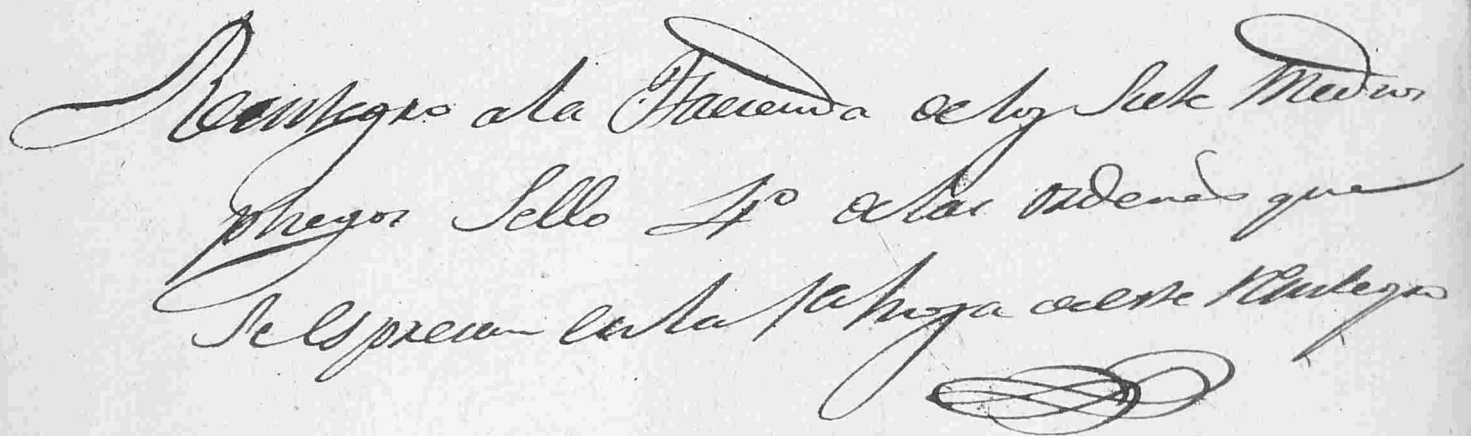 Reintegro a la Hacienda de los Siete Medios
pliegos Sello 4º de las ordenes que
se espresan en la 1ª hoja de este reintegro